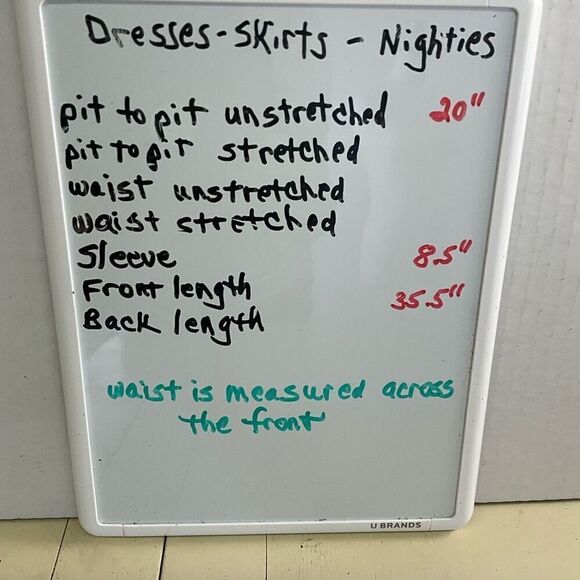 Dresses - Skirts - Nighties
pit to pit unstretched 20"
pit to pit stretched
waist unstretched
waist stretched
Sleeve 8.5"
Front length 35.5"
Back length
waist is measured across
the front
U BRANDS